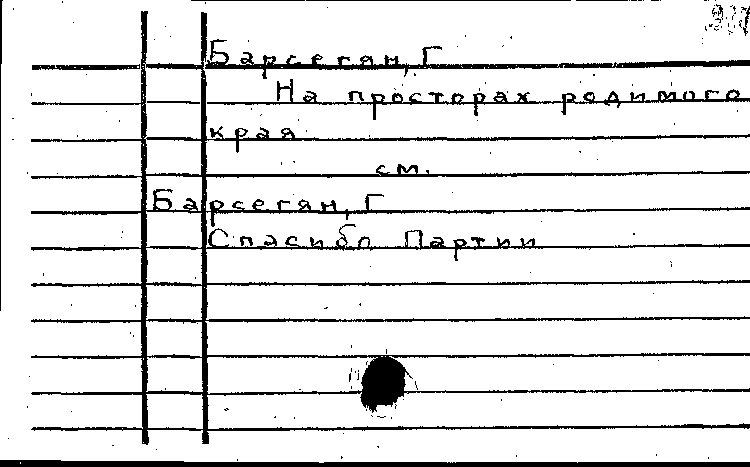 Барсегян, Г
На просторах родимого
края
см.
Барсегян, Г
Спасибо Партии